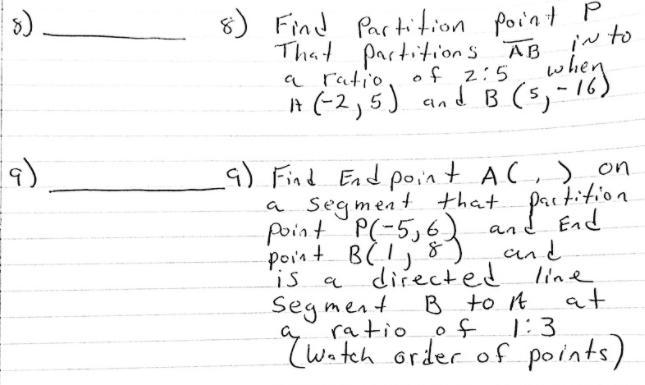 8) __________ 8) Find Partition point P
That partitions AB into
a ratio of 2:5 when
A (-2,5) and B (5,-16)
9) __________ 9) Find Endpoint A( , ) on
a segment that partition
point P(-5,6) and End
point B(1, 8) and
is a directed line
segment B to A at
a ratio of 1:3
(Watch order of points)